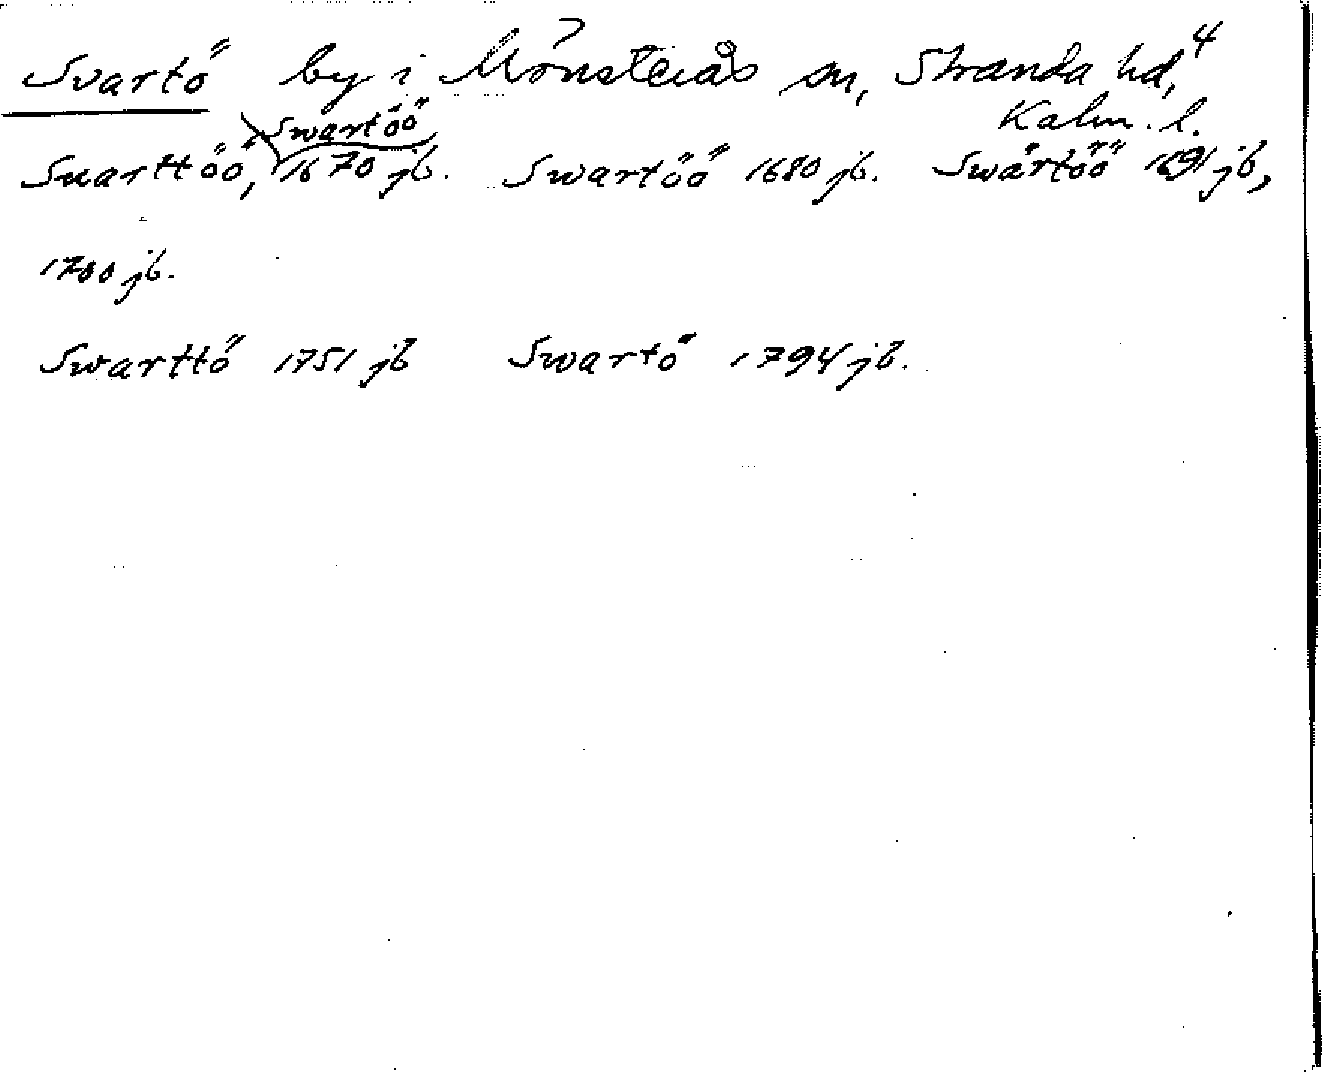 Svartö by i Mönsterås sn, Stranda hd, 4
Kalm. l.
Swartöö
Suarttöö, 1670 jb. Swartöö 1680 jb. Swärtöö 1691 jb,
1700 jb.
Swarttö 1751 jb Swartö 1794 jb.